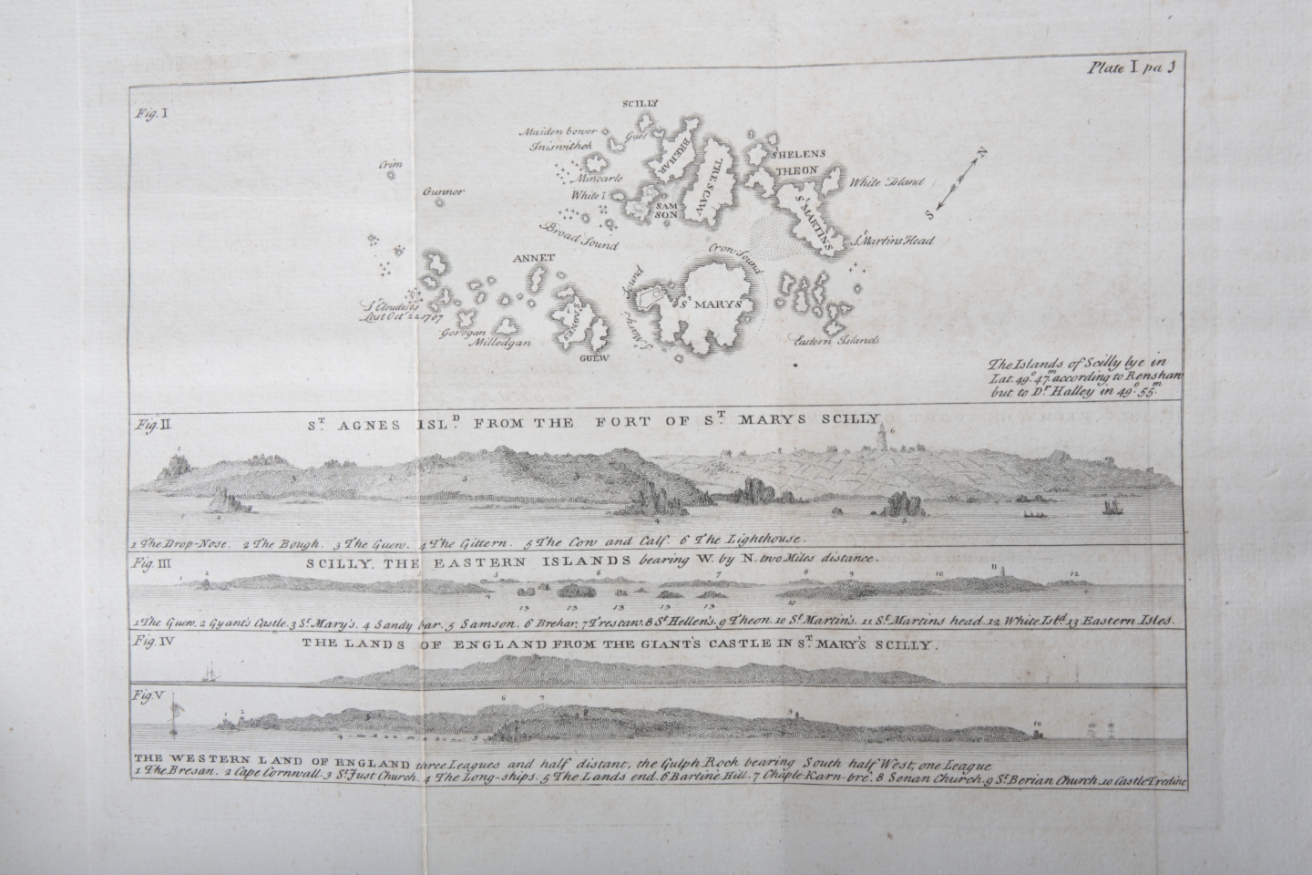 Plate I pa 3
Fig. I
SCILLY
Maiden bower
Iniswithek
Guel
BREHAR
TRESCAW
SHELENS
THEON
White Island
N
S
Crim
Gunnor
Mincarlo
White I
SAM
SON
Broad Sound
St MARTINS
St Martins Head
Crow Sound
ANNET
St MARYS
St Mary's Sound
Eastern Islands
Sr Cloudisly
Lost Oct 22 1707
Gorrgan
Milledgan
St AGNES
GUEW
The Islands of Scilly lye in
Lat. 49° 47m according to Renshaw
but to Dr Halley in 49° 55m
Fig. II
ST. AGNES ISLD. FROM THE FORT OF ST. MARYS SCILLY
1 The Drop-Nose. 2 The Bough. 3 The Guew. 4 The Gittern. 5 The Cow and Calf. 6 The Lighthouse.
Fig. III
SCILLY. THE EASTERN ISLANDS bearing W. by N. two Miles distance.
1 The Guew. 2 Gyant's Castle. 3 St. Mary's. 4 Sandy bar. 5 Samson. 6 Brehar. 7 Trescaw. 8 St Hellen's. 9 Theon. 10 St. Martin's. 11 St. Martins head. 12 White Isld. 13 Eastern Isles.
Fig. IV
THE LANDS OF ENGLAND FROM THE GIANT'S CASTLE IN ST. MARY'S SCILLY.
Fig. V
THE WESTERN LAND OF ENGLAND three Leagues and half distant, the Gulph Rock bearing South half West, one League
1 The Bresan. 2 Cape Cornwall. 3 St. Just Church. 4 The Long-ships. 5 The Lands end. 6 Bartine Hill. 7 Chaple Karn-bre. 8 Senan Church. 9 St. Berian Church. 10 Castle Tredine